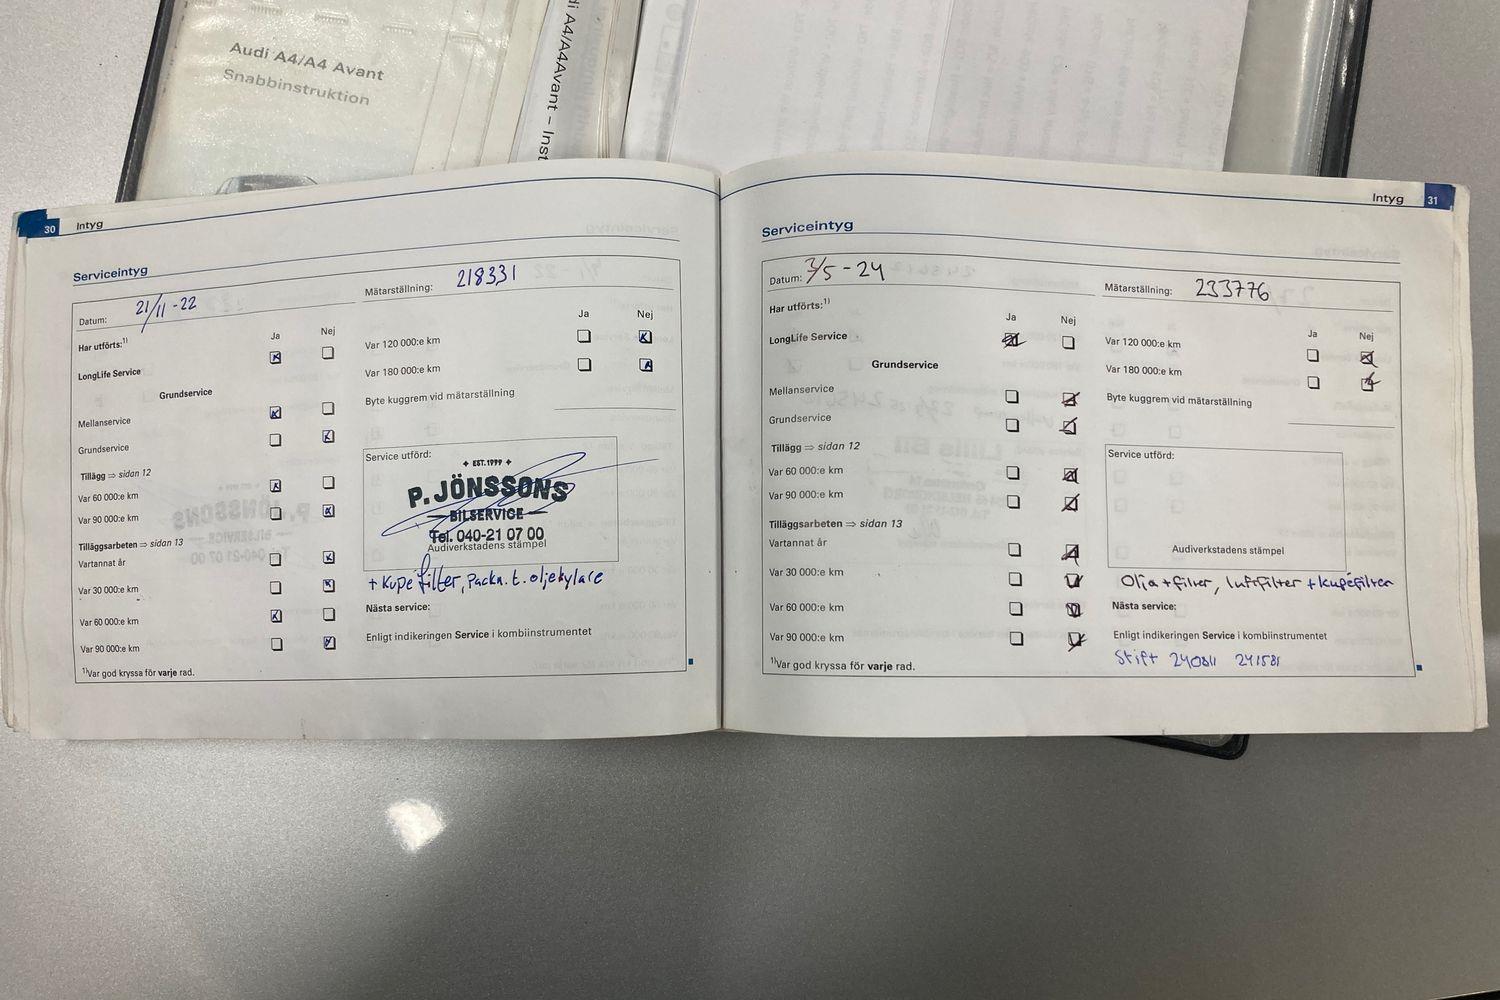 Audi A4/A4 Avant
Snabbinstruktion
Audi A4/A4Avant – Inst
30 Intyg
Serviceintyg
Datum: 21/11-22
Mätarställning: 218331
Har utförts:¹⁾
Ja Nej
LongLife Service
Grundservice
Mellanservice
Grundservice
Tillägg ⇒ sidan 12
Var 60 000:e km
Var 90 000:e km
Tilläggsarbeten ⇒ sidan 13
Vartannat år
Var 30 000:e km
Var 60 000:e km
Var 90 000:e km
¹⁾Var god kryssa för varje rad.
Ja Nej
Var 120 000:e km
Var 180 000:e km
Byte kuggrem vid mätarställning
Service utförd:
EST. 1999
P. JÖNSSONS
BILSERVICE
Tel. 040-21 07 00
Audiverkstadens stämpel
+ Kupefilter, packn. t. oljekylare
Nästa service:
Enligt indikeringen Service i kombiinstrumentet
Intyg 31
Serviceintyg
Datum: 7/5-24
Mätarställning: 233776
Har utförts:¹⁾
Ja Nej
LongLife Service
Grundservice
Mellanservice
Grundservice
Tillägg ⇒ sidan 12
Var 60 000:e km
Var 90 000:e km
Tilläggsarbeten ⇒ sidan 13
Vartannat år
Var 30 000:e km
Var 60 000:e km
Var 90 000:e km
¹⁾Var god kryssa för varje rad.
Ja Nej
Var 120 000:e km
Var 180 000:e km
Byte kuggrem vid mätarställning
Service utförd:
Audiverkstadens stämpel
Olja + filter, luftfilter + kupefilter
Nästa service:
Enligt indikeringen Service i kombiinstrumentet
Stift 240811 241581